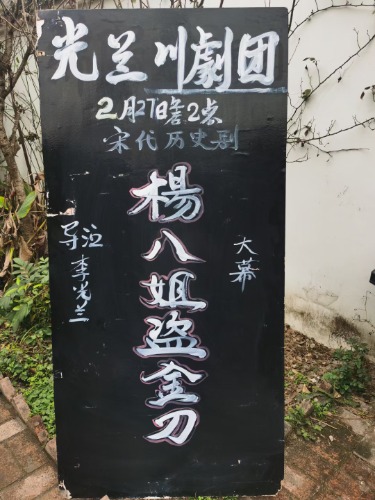 光兰川劇团
2月27日 2点
宋代历史剧
楊八姐盗金刀
大幕
导
李光兰